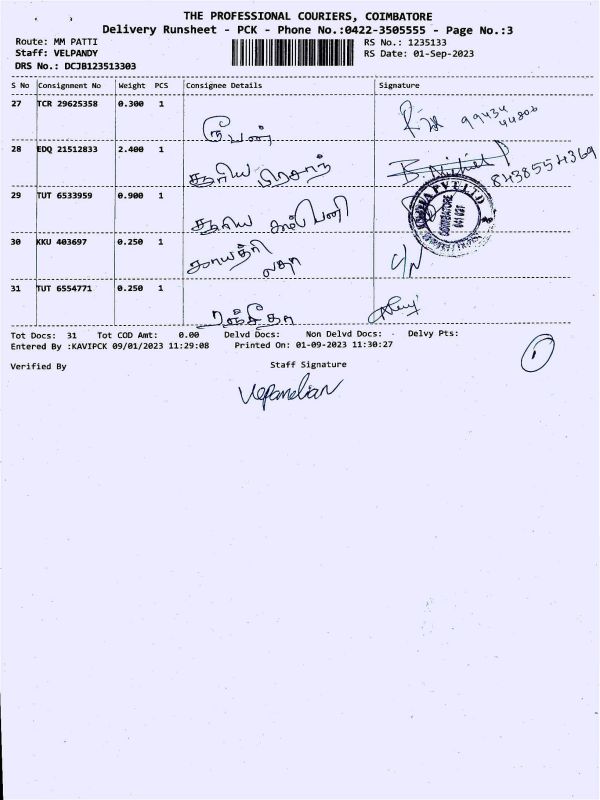 THE PROFESSIONAL COURIERS, COIMBATORE
Delivery Runsheet - PCK - Phone No.:0422-3505555 - Page No.:3
Route: MM PATTI
RS No.: 1235133
Staff: VELPANDY
RS Date: 01-Sep-2023
DRS No.: DCJB123513303
S No Consignment No Weight PCS Consignee Details Signature
27 TCR 29625358 0.300 1
99434
44806
28 EDQ 21512833 2.400 1 சூரிய பிரசாந்
8438554369
29 TUT 6533959 0.900 1 சூரிய கம்பெனி
COIMBATORE
641 021
30 KKU 403697 0.250 1 காயத்ரி
லதா
31 TUT 6554771 0.250 1 ரஞ்சிதா
Tot Docs: 31 Tot COD Amt: 0.00 Delvd Docs: Non Delvd Docs: Delvy Pts:
Entered By :KAVIPCK 09/01/2023 11:29:08 Printed On: 01-09-2023 11:30:27
Verified By Staff Signature